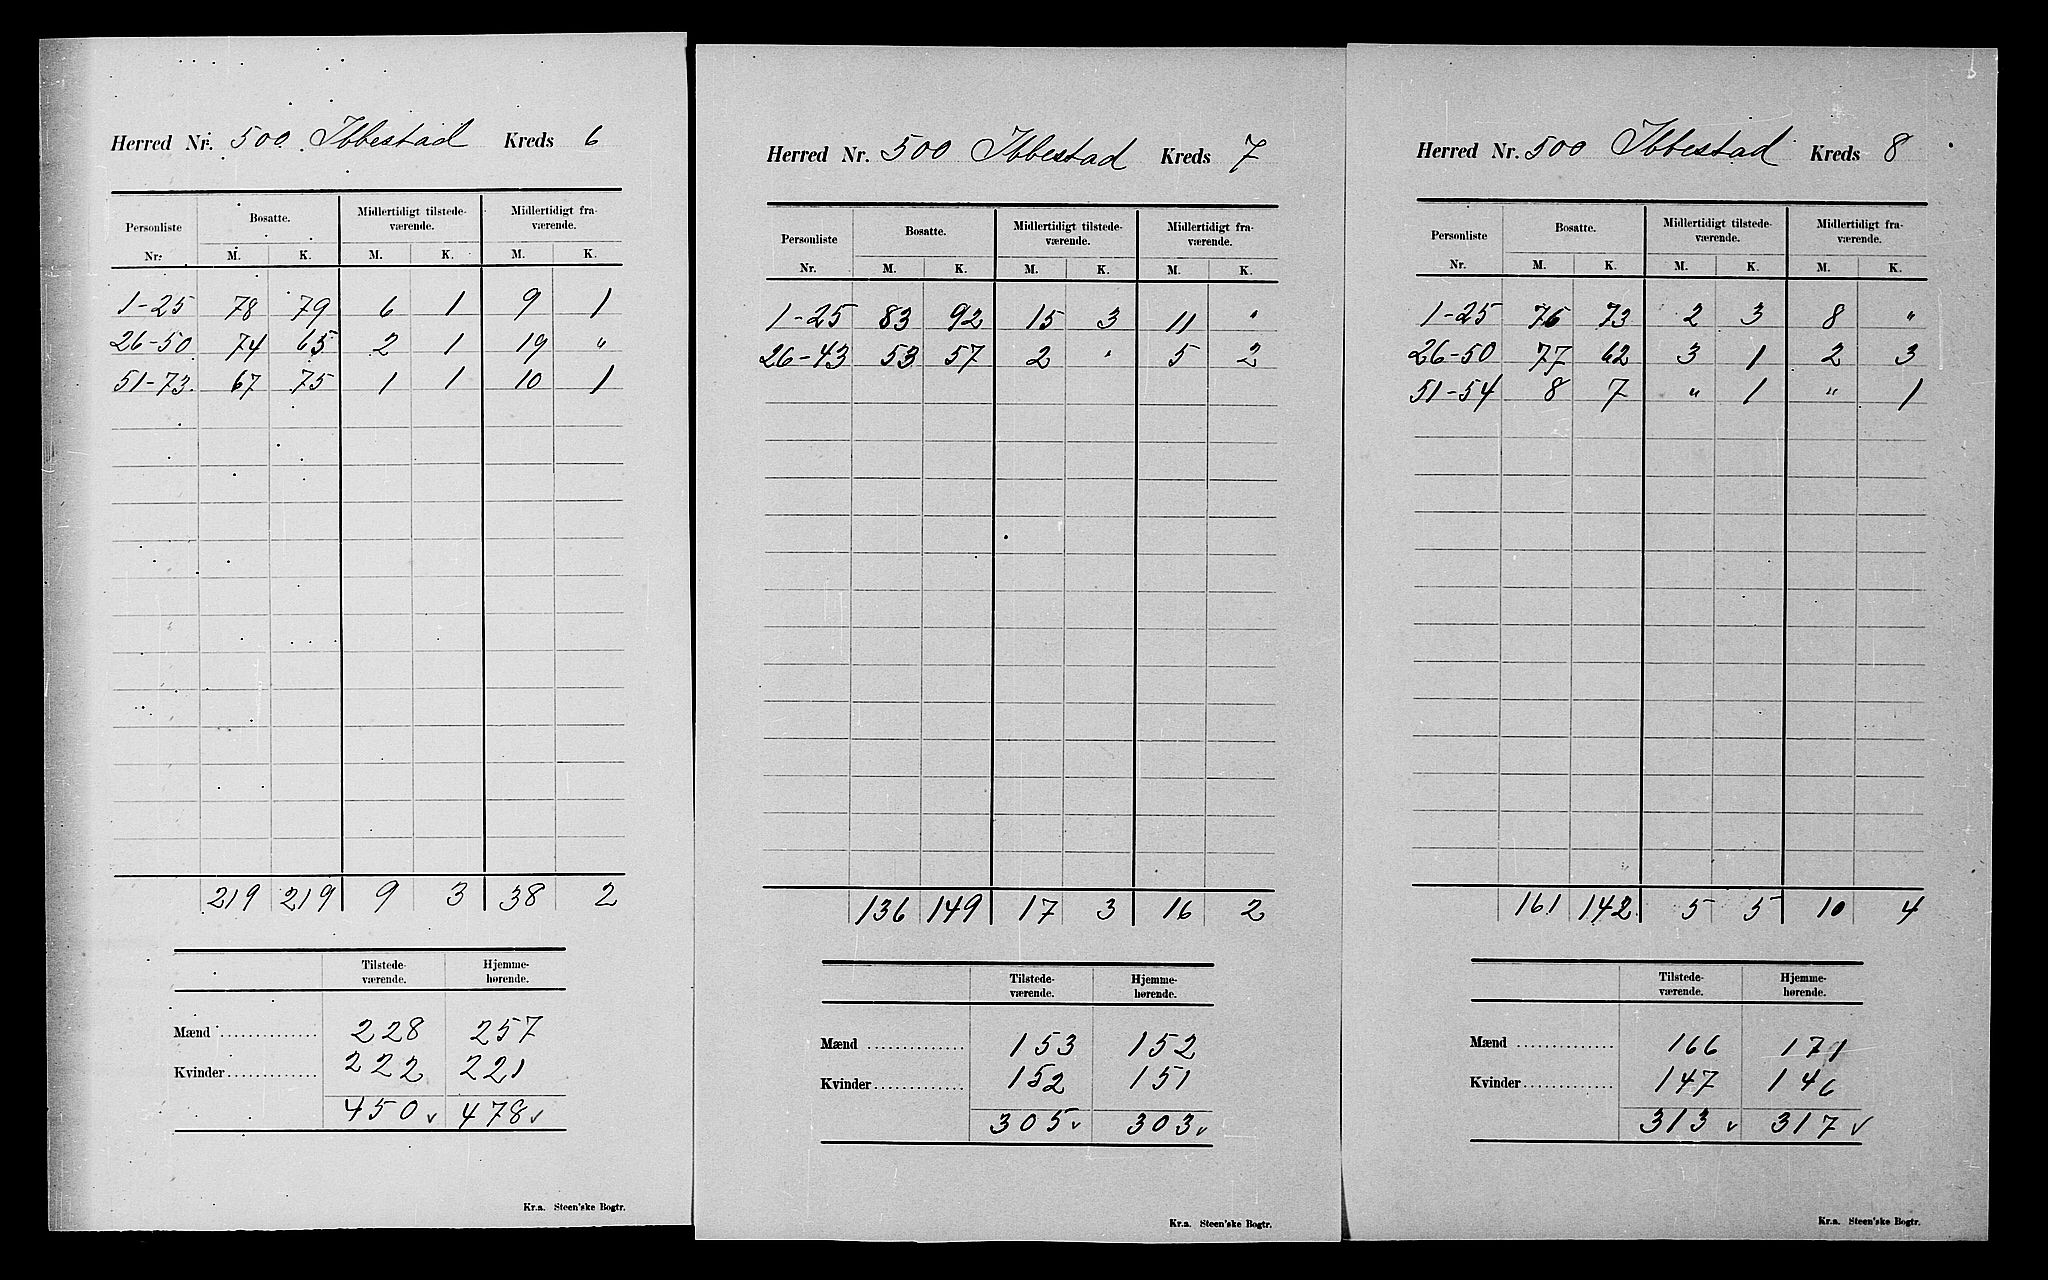 Herred Nr. 500 Ibbestad Kreds 6
Personliste Bosatte. Midlertidigt tilstede- Midlertidigt fra-
værende. værende.
Nr. M. K. M. K. M. K.
1-25 78 79 6 1 9 1
26-50 74 65 2 1 19 "
51-73. 67 75 1 1 10 1
219 219 9 3 38 2
Tilstede- Hjemme-
værende. hørende.
Mænd 228 257
Kvinder 222 221
450 v 478 v
Kr.a. Steen'ske Bogtr.
Herred Nr. 500 Ibbestad Kreds 7
Personliste Bosatte. Midlertidigt tilstede- Midlertidigt fra-
værende. værende.
Nr. M. K. M. K. M. K.
1-25 83 92 15 3 11 "
26-43 53 57 2 " 5 2
136 149 17 3 16 2
Tilstede- Hjemme-
værende. hørende.
Mænd 153 152
Kvinder 152 151
305 v 303 v
Kr.a. Steen'ske Bogtr.
Herred Nr. 500 Ibbestad Kreds 8
Personliste Bosatte. Midlertidigt tilstede- Midlertidigt fra-
værende. værende.
Nr. M. K. M. K. M. K.
1-25 76 73 2 3 8 "
26-50 77 62 3 1 2 3
51-54 8 7 " 1 " 1
161 142 5 5 10 4
Tilstede- Hjemme-
værende. hørende.
Mænd 166 171
Kvinder 147 146
313 v 317 v
Kr.a. Steen'ske Bogtr.